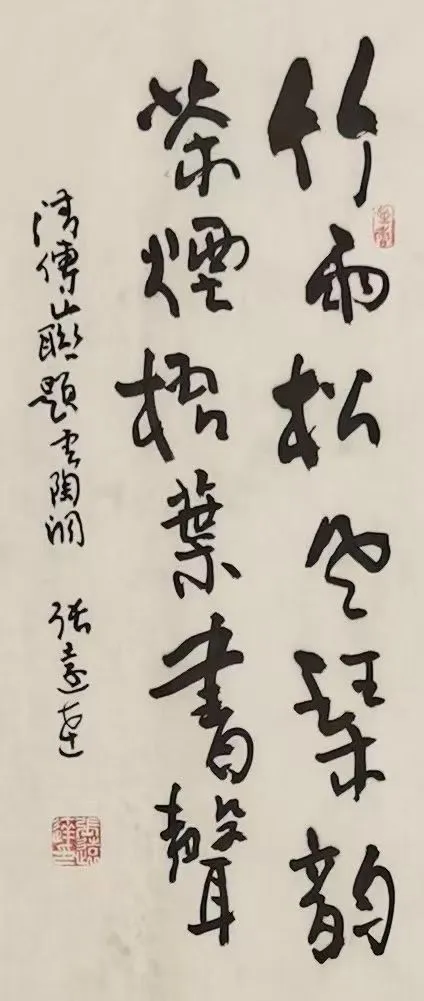 竹雨松風琹韵
茶煙梧葉書聲
清傅山聯題雲陶洞 張遠達